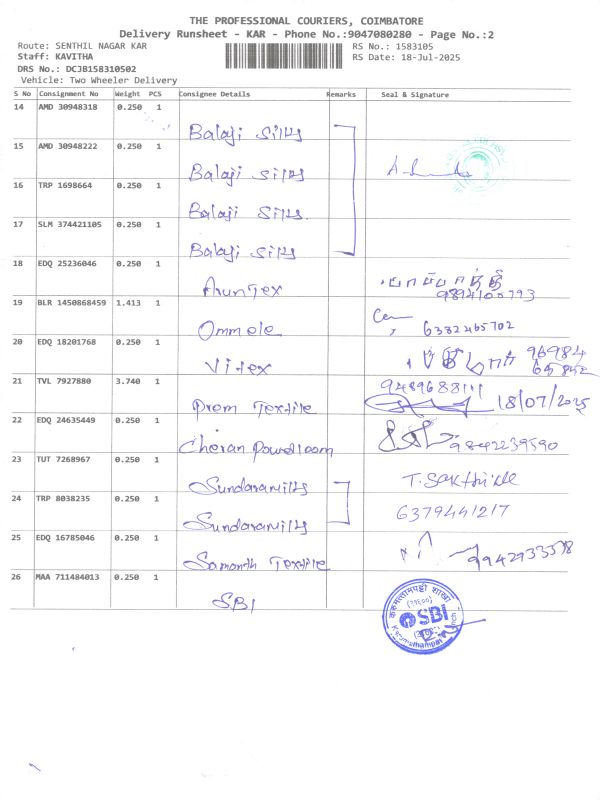 THE PROFESSIONAL COURIERS, COIMBATORE
Delivery Runsheet - KAR - Phone No.:9047080280 - Page No.:2
Route: SENTHIL NAGAR KAR
RS No.: 1583105
Staff: KAVITHA
RS Date: 18-Jul-2025
DRS No.: DCJB158310502
Vehicle: Two Wheeler Delivery
S No Consignment No Weight PCS Consignee Details Remarks Seal & Signature
14 AMD 30948318 0.250 1
Balaji
15 AMD 30948222 0.250 1
Balaji
16 TRP 1698664 0.250 1
Balaji
17 SLM 374421105 0.250 1
Balaji
18 EDQ 25236046 0.250 1
ArunTex
19 BLR 1450868459 1.413 1
Ommele 6382465702
20 EDQ 18201768 0.250 1
Vitex 96984
21 TVL 7927880 3.740 1
Prem Textile 18/07/2025
22 EDQ 24635449 0.250 1
Cheran Powerloom 9842239590
23 TUT 7268967 0.250 1
Sundaramills
24 TRP 8038235 0.250 1
Sundaramills 6379441217
25 EDQ 16785046 0.250 1
Textile
26 MAA 711484013 0.250 1
SBI
SBI